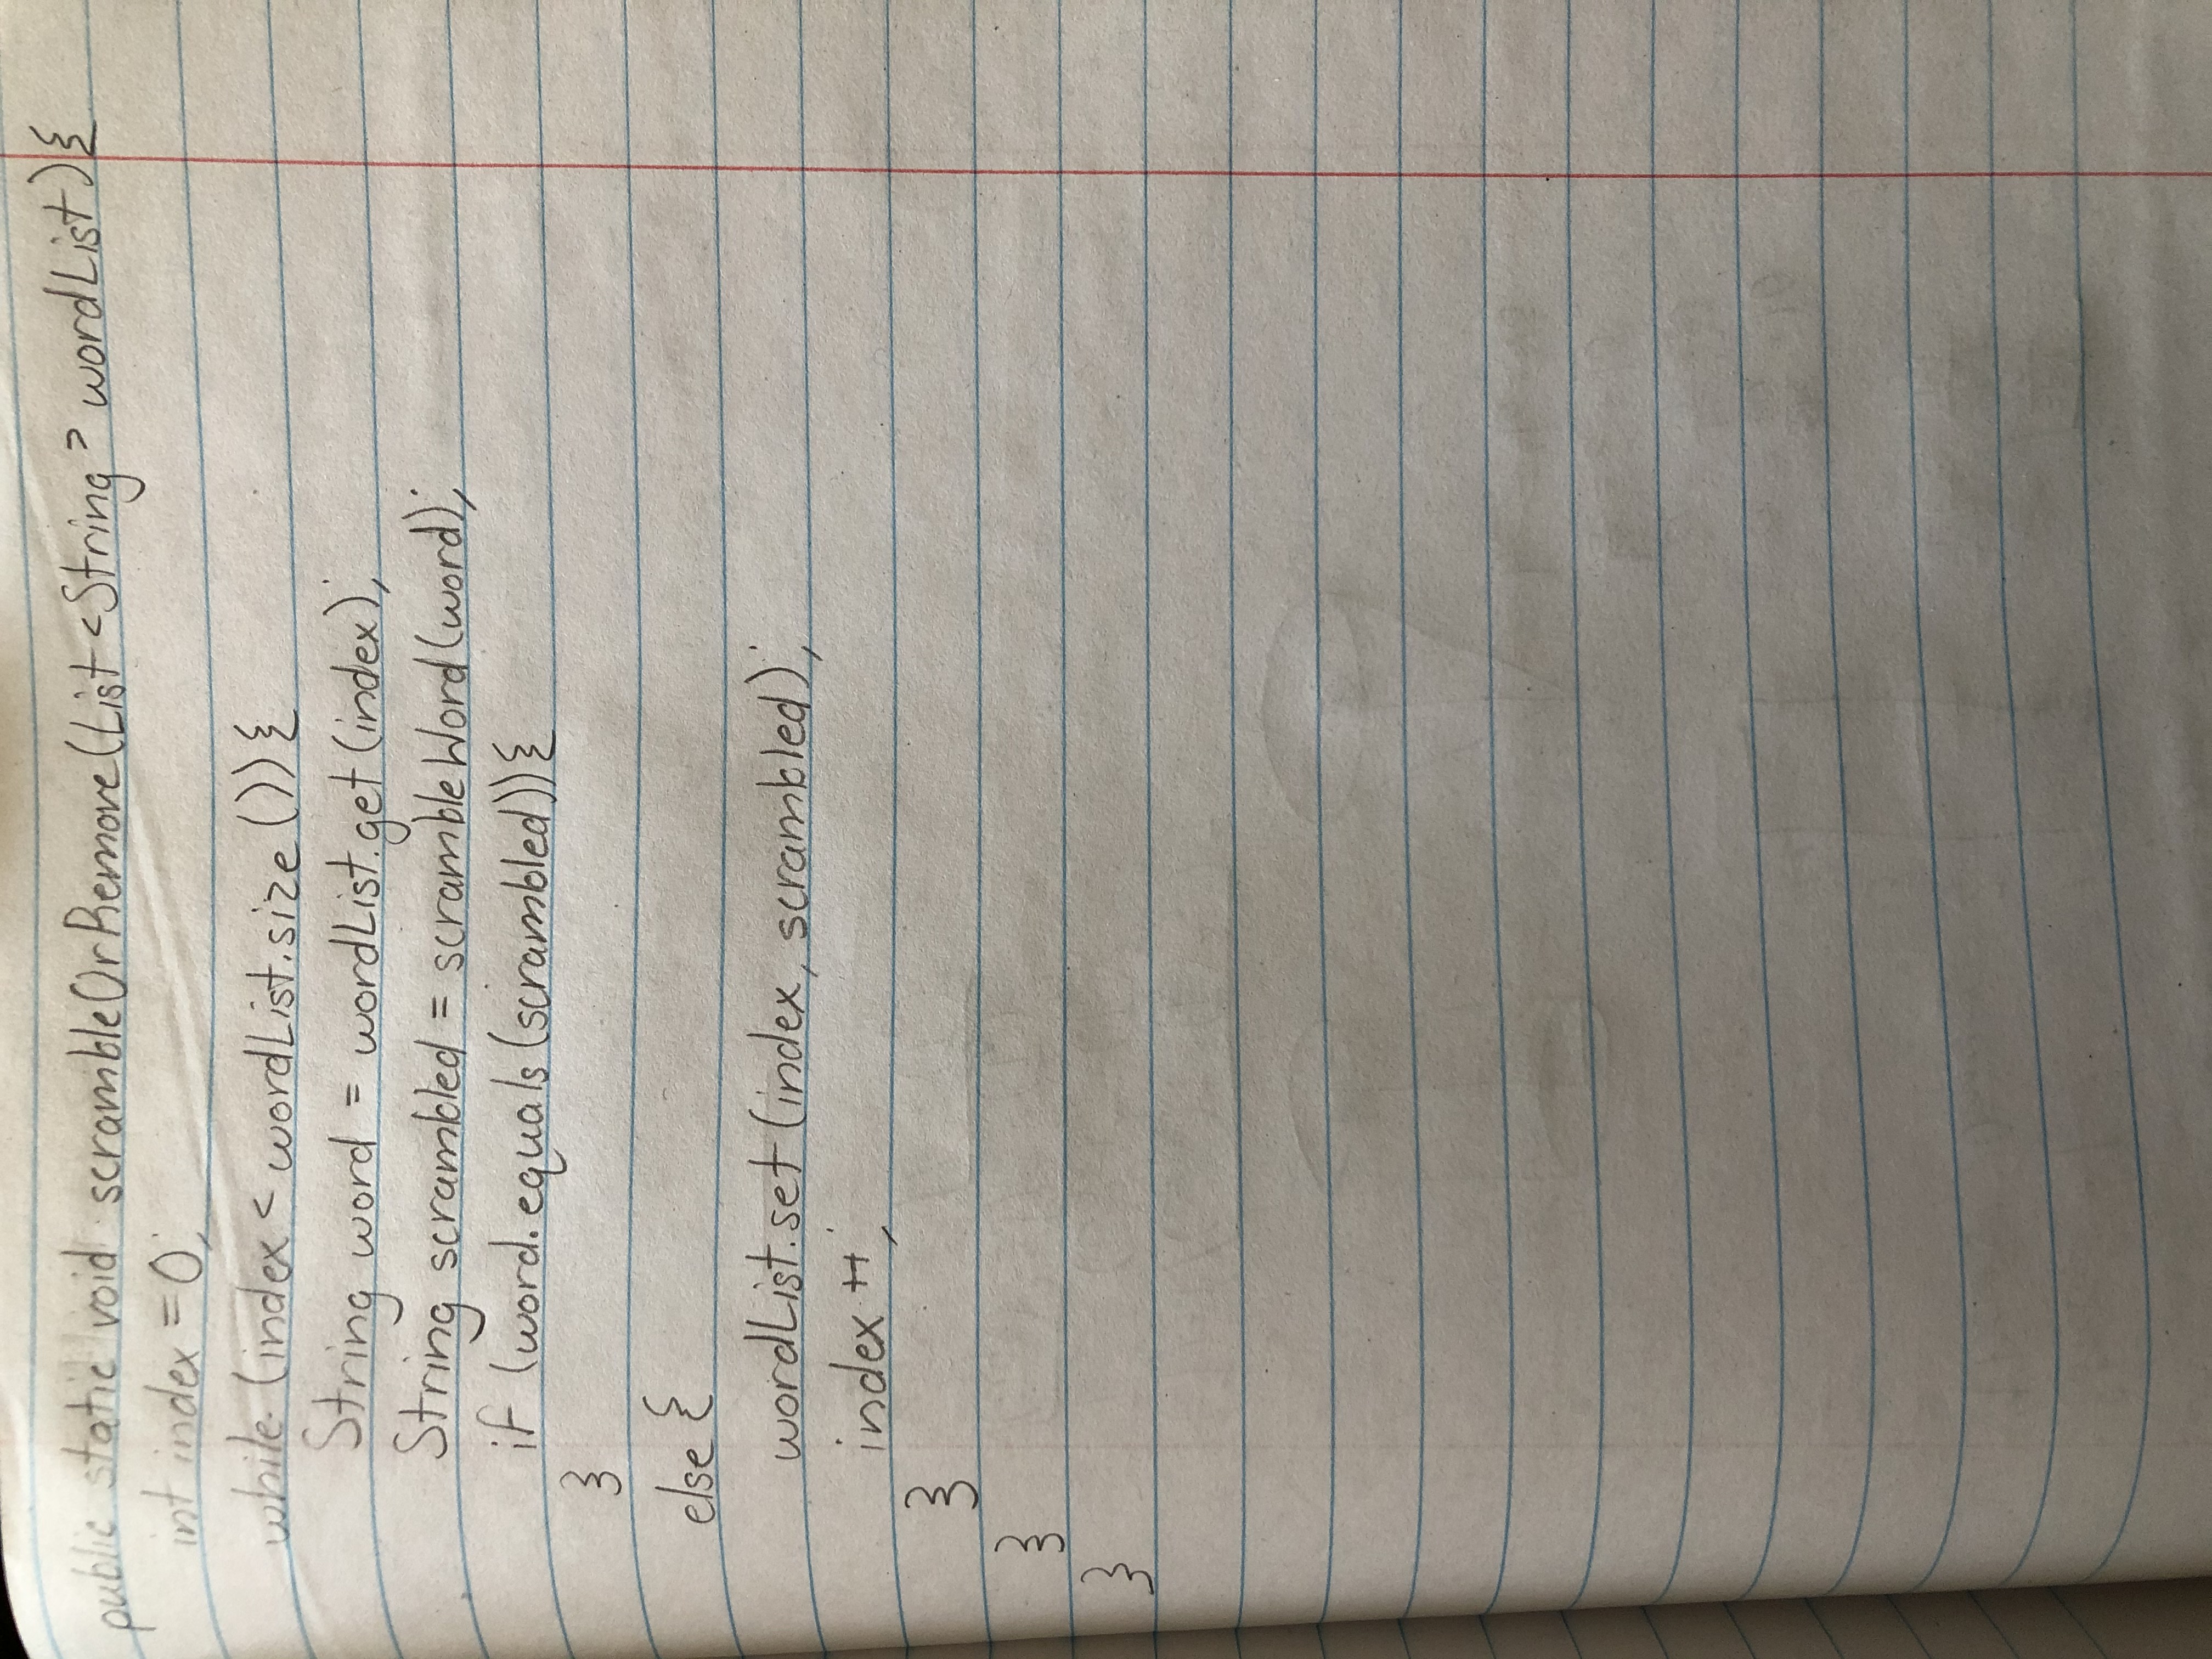 public static void scrambleOrRemove(List<String> wordList){
int index = 0;
while (index < wordList.size()){
String word = wordList.get(index);
String scrambled = scrambleWord(word);
if (word.equals(scrambled)){
}
else {
wordList.set(index, scrambled);
index++;
}
}
}